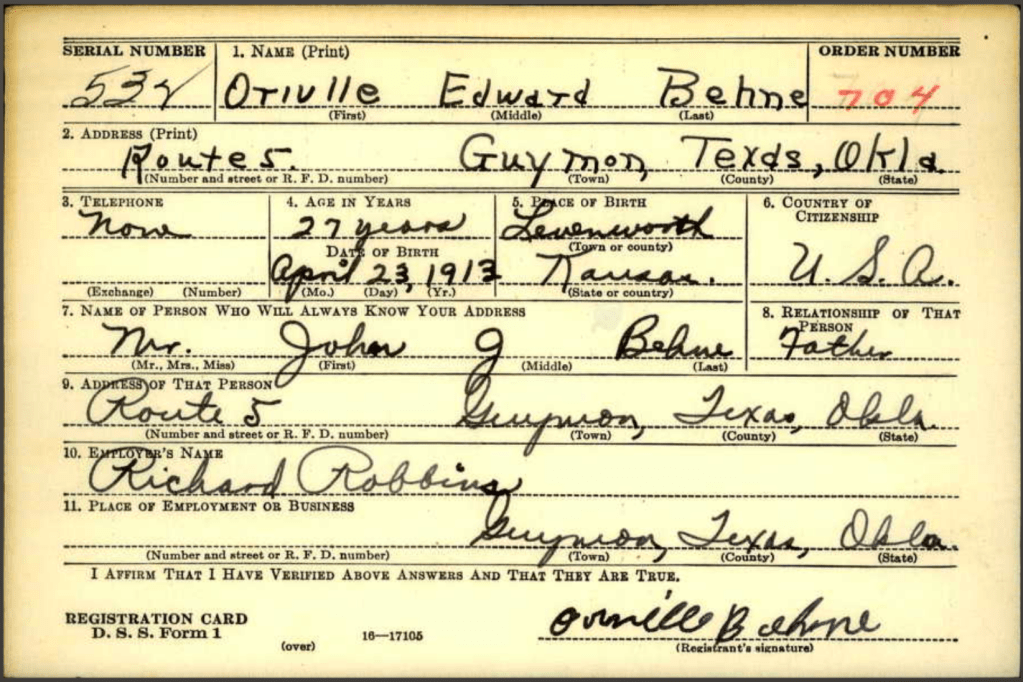 SERIAL NUMBER 1. NAME (Print) ORDER NUMBER
532 Orville Edward Behne 704
(First) (Middle) (Last)
2. ADDRESS (Print)
Route 5. Guymon, Texas, Okla.
(Number and street or R. F. D. number) (Town) (County) (State)
3. TELEPHONE 4. AGE IN YEARS 5. PLACE OF BIRTH 6. COUNTRY OF CITIZENSHIP
None 27 years Levenworth
DATE OF BIRTH (Town or county)
April 23, 1913 Kansas. U. S. A.
(Exchange) (Number) (Mo.) (Day) (Yr.) (State or country)
7. NAME OF PERSON WHO WILL ALWAYS KNOW YOUR ADDRESS 8. RELATIONSHIP OF THAT PERSON
Mr. John J Behne Father
(Mr., Mrs., Miss) (First) (Middle) (Last)
9. ADDRESS OF THAT PERSON
Route 5 Guymon, Texas, Okla.
(Number and street or R. F. D. number) (Town) (County) (State)
10. EMPLOYER'S NAME
Richard Robbins
11. PLACE OF EMPLOYMENT OR BUSINESS
Guymon, Texas, Okla.
(Number and street or R. F. D. number) (Town) (County) (State)
I AFFIRM THAT I HAVE VERIFIED ABOVE ANSWERS AND THAT THEY ARE TRUE.
REGISTRATION CARD
D. S. S. Form 1 16—17105 Orville Behne
(over) (Registrant's signature)